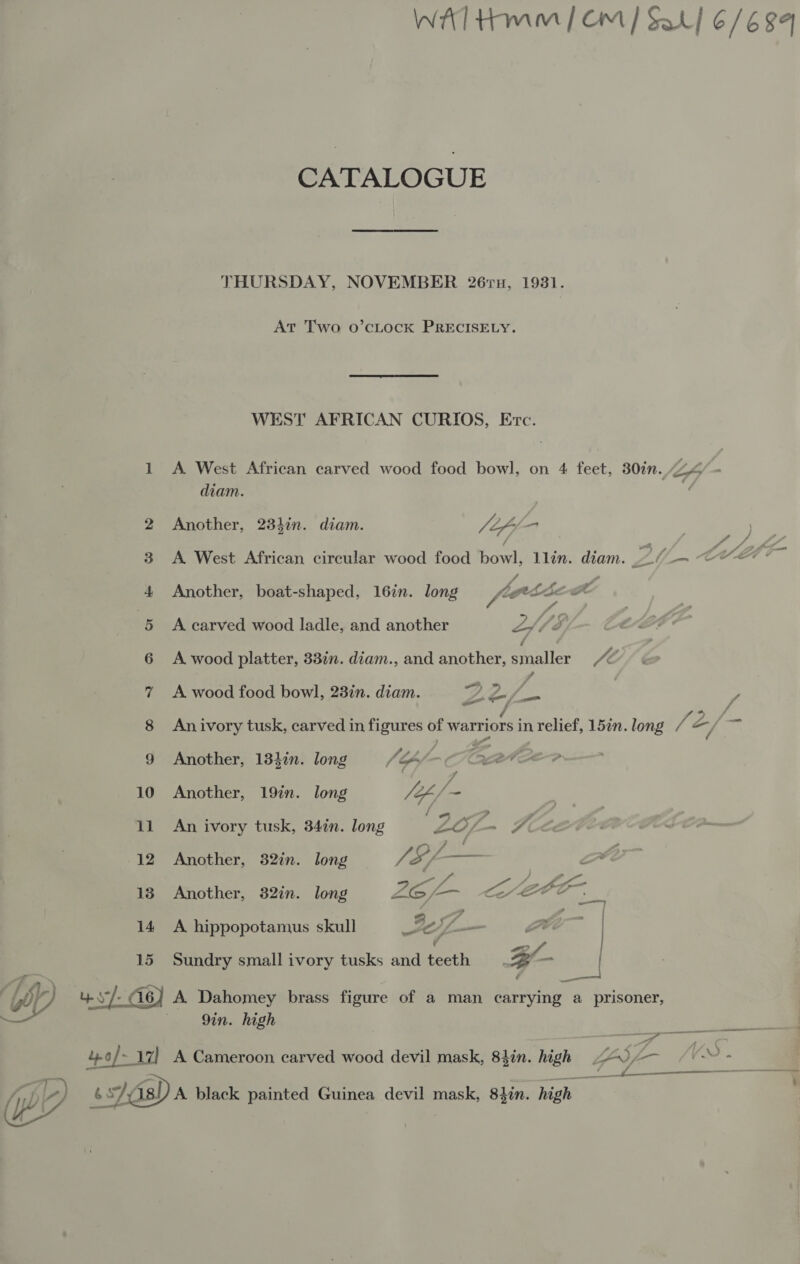 WA/HMM/CM/Sal/6/689
CATALOGUE
THURSDAY, NOVEMBER 26TH, 1931.
AT TWO O'CLOCK PRECISELY.
WEST AFRICAN CURIOS, ETC.
1 A West African carved wood food bowl, on 4 feet, 30in.
diam.
2 Another, 23½in. diam.
3 A West African circular wood food bowl, 11in. diam.
4 Another, boat-shaped, 16in. long
5 A carved wood ladle, and another
6 A wood platter, 33in. diam., and another, smaller
7 A wood food bowl, 23in. diam. 22/-
8 An ivory tusk, carved in figures of warriors in relief, 15in. long 12/-
9 Another, 13½in. long
10 Another, 19in. long
11 An ivory tusk, 34in. long 20/-
12 Another, 32in. long 18/-
13 Another, 32in. long 26/-
14 A hippopotamus skull
15 Sundry small ivory tusks and teeth
45/- 16) A Dahomey brass figure of a man carrying a prisoner,
9in. high
40/- 17) A Cameroon carved wood devil mask, 8½in. high
65/- 18) A black painted Guinea devil mask, 8½in. high